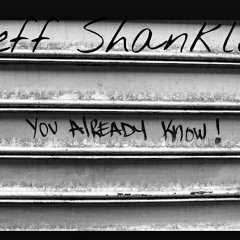 eff Shankl
YOU AlREADY KNOW!